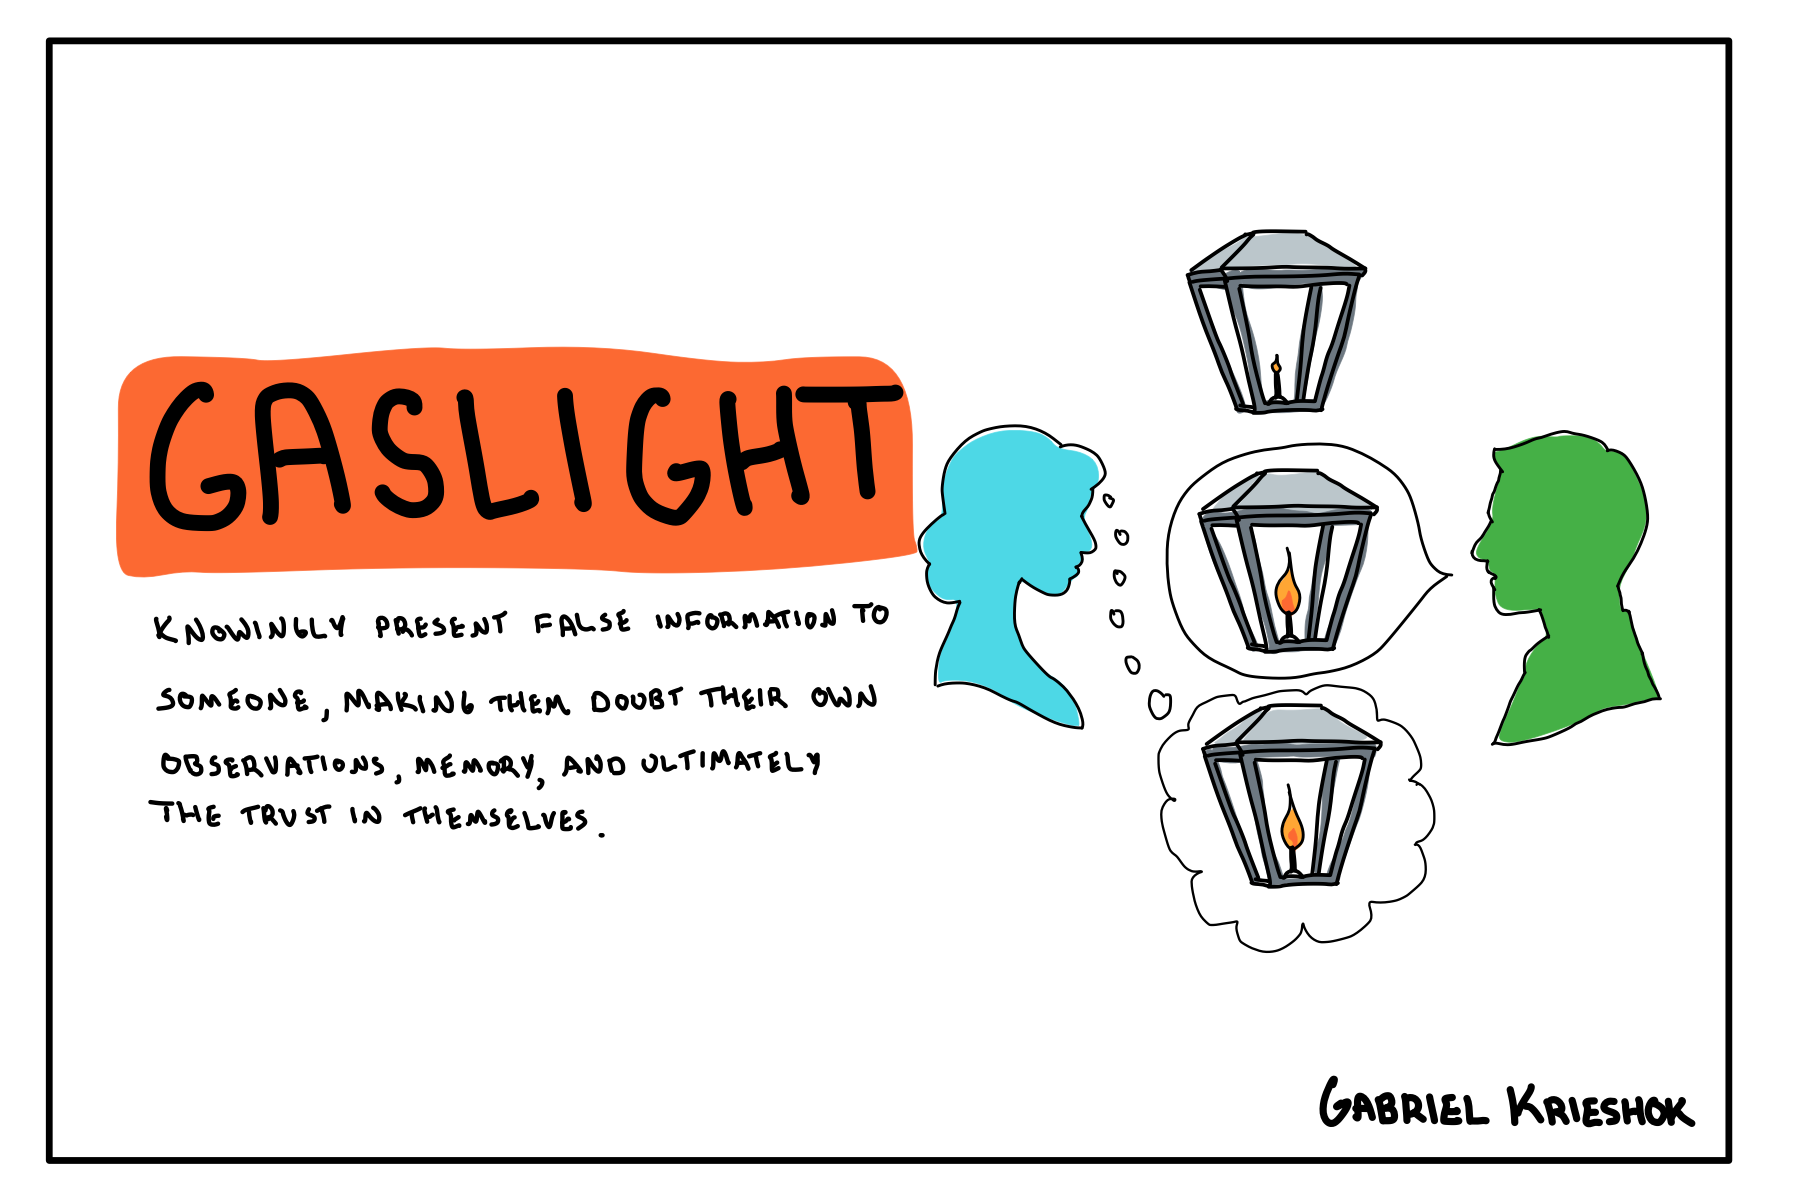 GASLIGHT
KNOWINGLY PRESENT FALSE INFORMATION TO
SOMEONE, MAKING THEM DOUBT THEIR OWN
OBSERVATIONS, MEMORY, AND ULTIMATELY
THE TRUST IN THEMSELVES.
GABRIEL KRIESHOK